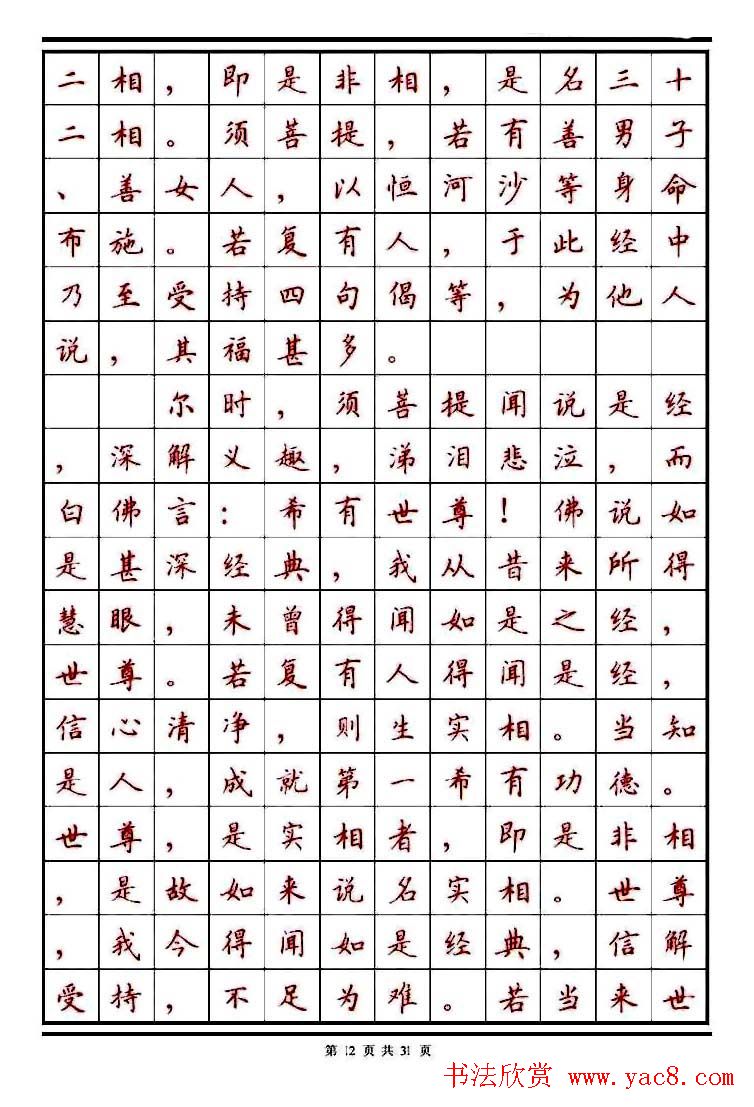 二相，即是非相，是名三十
二相。须菩提，若有善男子
、善女人，以恒河沙等身命
布施。若复有人，于此经中
乃至受持四句偈等，为他人
说，其福甚多。
尔时，须菩提闻说是经
，深解义趣，涕泪悲泣，而
白佛言：希有世尊！佛说如
是甚深经典，我从昔来所得
慧眼，未曾得闻如是之经，
世尊。若复有人得闻是经，
信心清净，则生实相。当知
是人，成就第一希有功德。
世尊，是实相者，即是非相
，是故如来说名实相。世尊
，我今得闻如是经典，信解
受持，不足为难。若当来世
第 12 页 共 31 页
书法欣赏 www.yac8.com